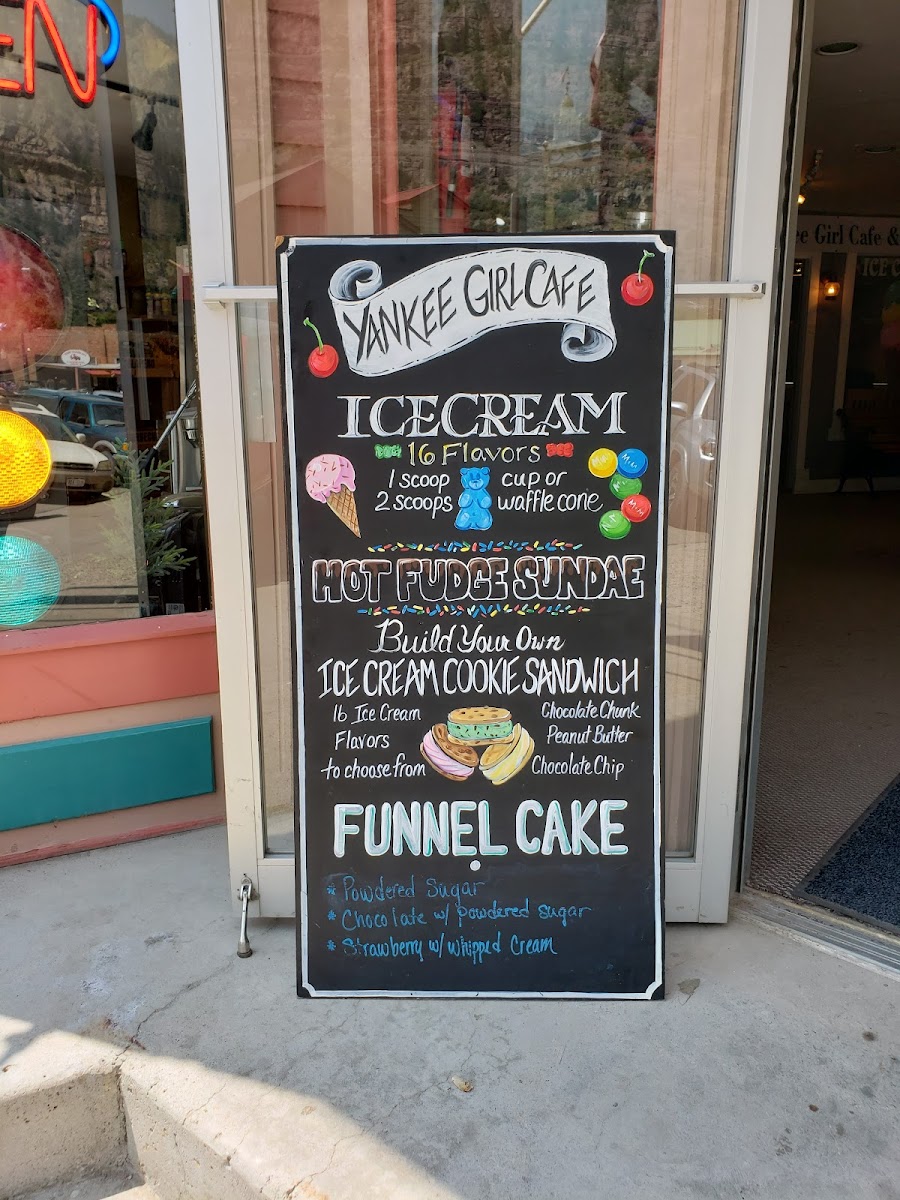 EN
ee Girl Cafe &
ICE C
YANKEE GIRL CAFE
ICECREAM
16 Flavors
1 scoop cup or
2 scoops waffle cone
HOT FUDGE SUNDAE
Build Your Own
ICE CREAM COOKIE SANDWICH
16 Ice Cream
Flavors
to choose from
Chocolate Chunk
Peanut Butter
Chocolate Chip
FUNNEL CAKE
* Powdered Sugar
* Chocolate w/ powdered sugar
* Strawberry w/ whipped Cream